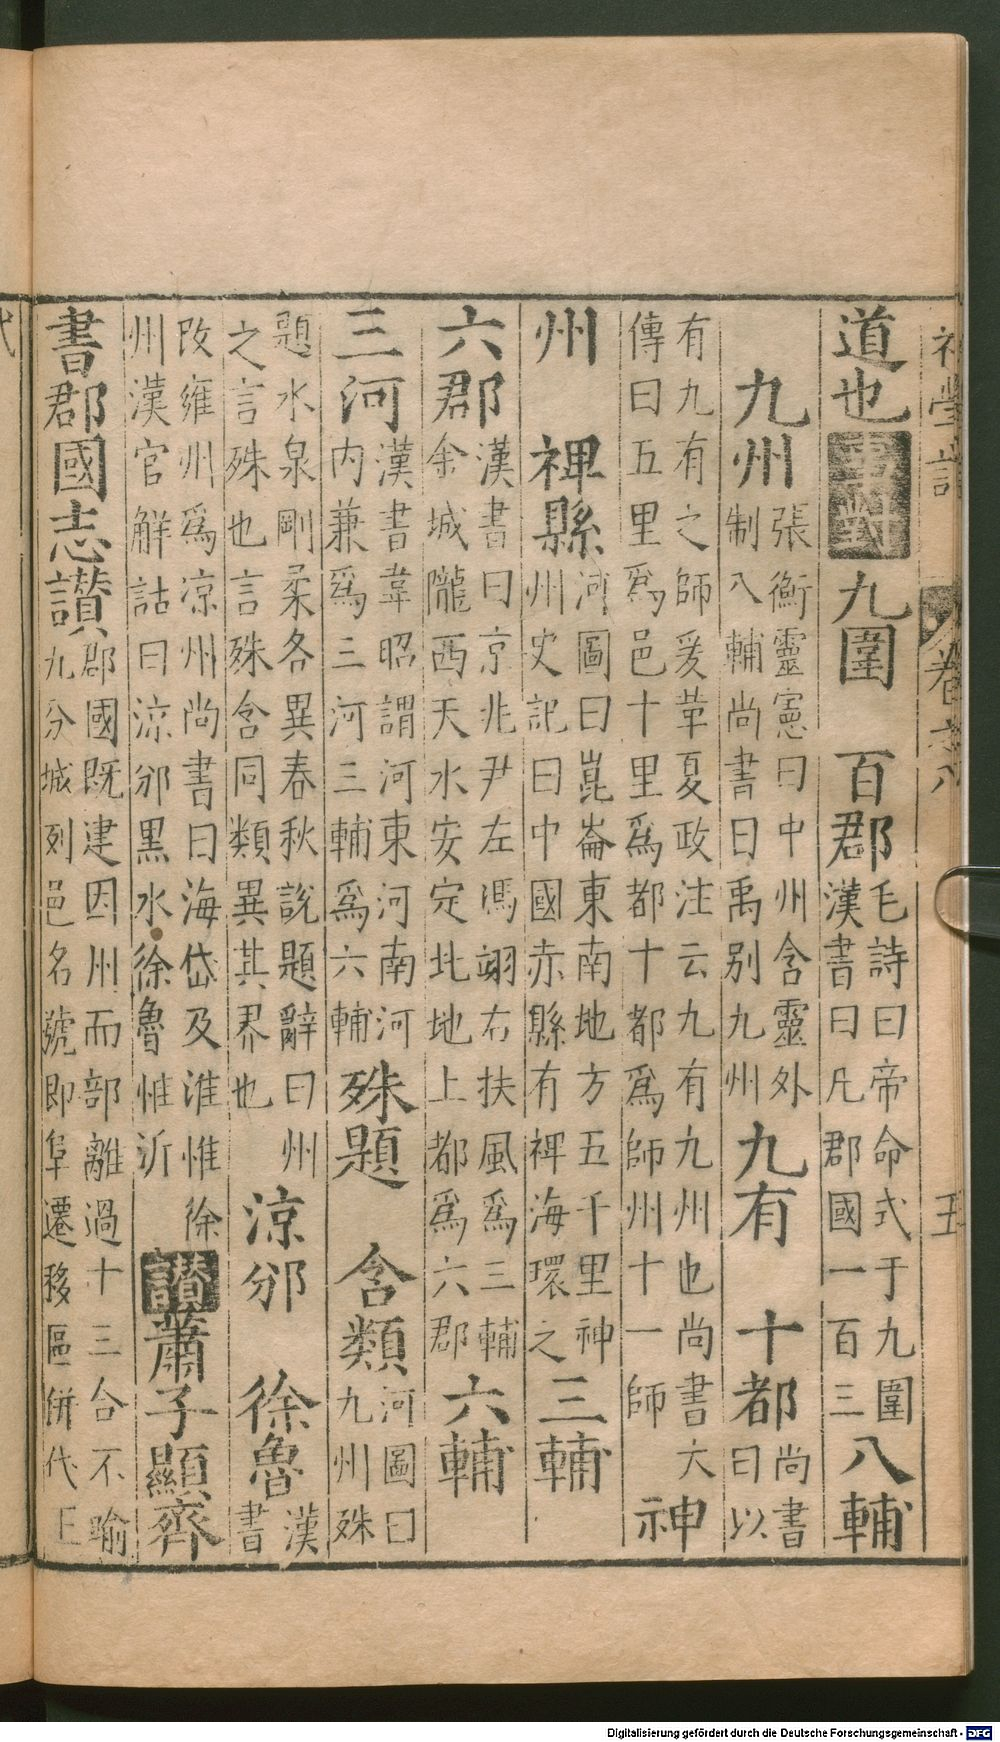 初學記 卷八 五
道也 事對 九圍 百郡 毛詩曰帝命式于九圍漢書曰凡郡國一百三 八輔
九州 張衡靈憲曰中州含靈外制八輔尚書曰禹別九州 九有 十都 尚書曰以
有九有之師爰革夏政注云九有九州也尚書大傳曰五里爲邑十里爲都十都爲師州十一師 神
州 裨縣 河圖曰崑崙東南地方五千里神州史記曰中國赤縣有裨海環之 三輔
六郡 漢書曰京兆尹左馮翊右扶風爲三輔金城隴西天水安定北地上都爲六郡 六輔
三河 漢書韋昭謂河東河南河內兼爲三河三輔爲六輔 殊題 含類 河圖曰九州殊
題水泉剛柔各異春秋說題辭曰州之言殊也言殊含同類異其界也 涼邠 徐魯 漢書
改雍州爲凉州尚書曰海岱及淮惟徐州漢官解詁曰涼邠黑水徐魯惟沂 讃 蕭子顯齊
書郡國志讃 郡國既建因州而部離過十三合不喻九分城列邑名號即阜遷移區併代正
代
Digitalisierung gefördert durch die Deutsche Forschungsgemeinschaft - DFG